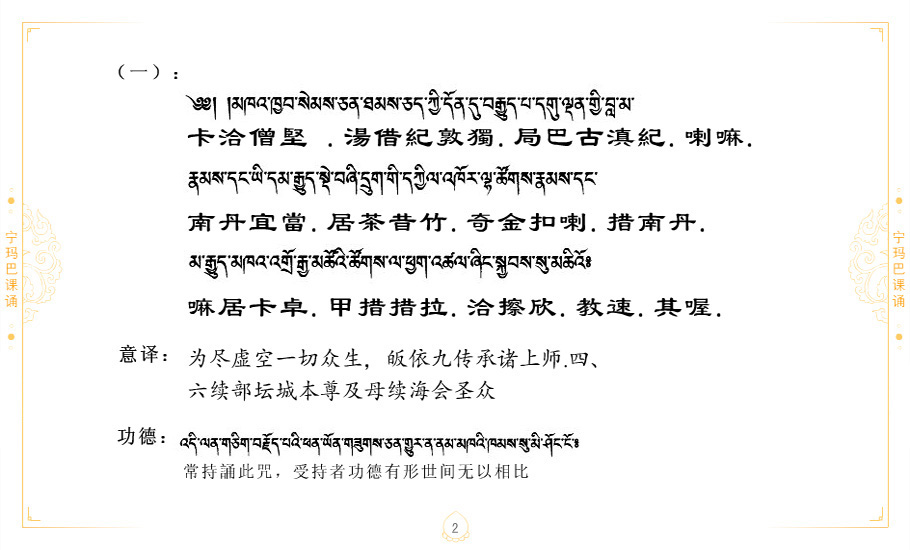 （一）：
༄༅། །མཁའ་ཁྱབ་སེམས་ཅན་ཐམས་ཅད་ཀྱི་དོན་དུ་བརྒྱུད་པ་དགུ་ལྡན་གྱི་བླ་མ་
卡洽僧堅 . 湯借紀敦獨. 局巴古滇紀. 喇嘛.
རྣམས་དང་ཡི་དམ་རྒྱུད་སྡེ་བཞི་དྲུག་གི་དཀྱིལ་འཁོར་ལྷ་ཚོགས་རྣམས་དང་
南丹宜當. 居茶昔竹. 奇金扣喇. 措南丹.
མ་རྒྱུད་མཁའ་འགྲོ་རྒྱ་མཚོའི་ཚོགས་ལ་ཕྱག་འཚལ་ཞིང་སྐྱབས་སུ་མཆིའོ༔
嘛居卡卓. 甲措措拉. 洽擦欣. 教速. 其喔.
意译： 为尽虚空一切众生，皈依九传承诸上师.四、
六续部坛城本尊及母续海会圣众
功德： འདི་ལན་གཅིག་བརྗོད་པའི་ཕན་ཡོན་གཟུགས་ཅན་གྱུར་ན་ནམ་མཁའི་ཁམས་སུ་མི་ཤོང་ངོ༔
常持誦此咒，受持者功德有形世间无以相比
宁玛巴课诵
宁玛巴课诵
2